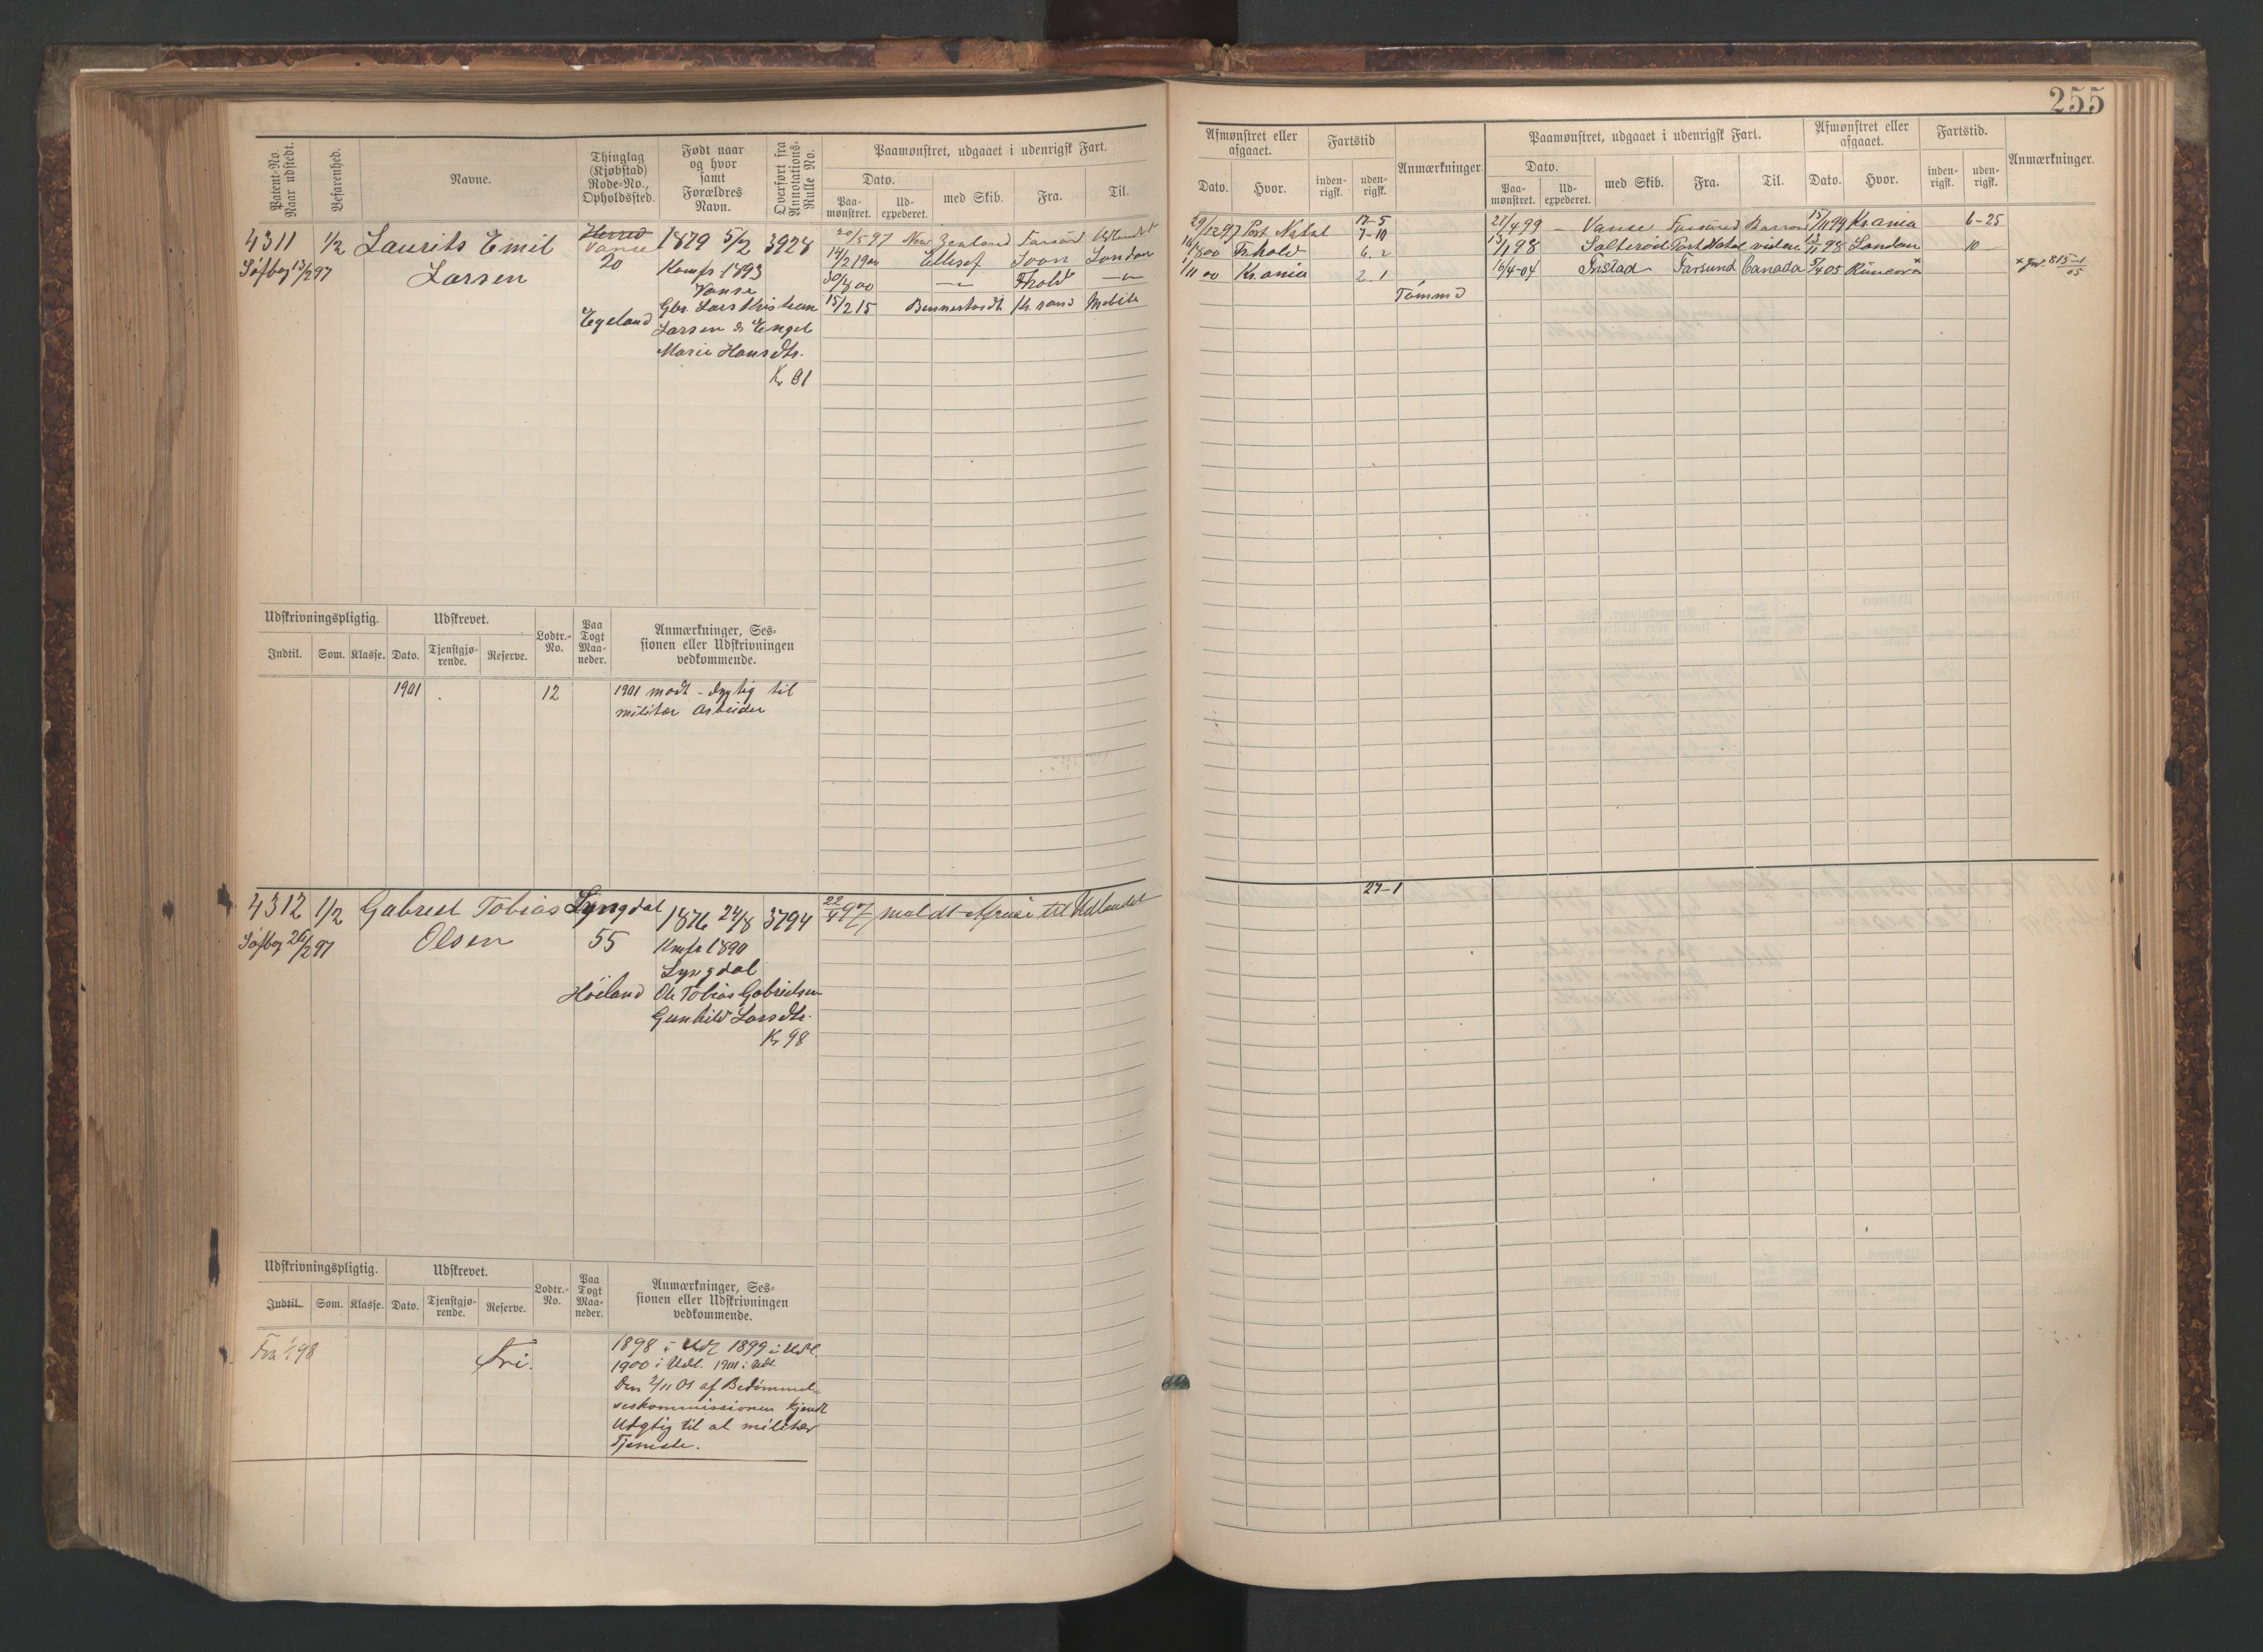 255
Patent-No. Naar udstedt.
Befarenhed.
Navne.
Thinglag (Kjøbstad) Rode-No., Opholdssted.
Født naar og hvor samt Forældres Navn.
Overført fra Annotations-Rulle No.
Paamønstret, udgaaet i udenrigsk Fart.
Dato.
Paa-mønstret.
Ud-expederet.
med Skib.
Fra.
Til.
4311 1/2 Laurits Emil Vanse 1879 5/2 3928
Søfbog 13/2 97 Larsen 20 Konfr 1893
Vanse
Egeland Gbr. Lars Kristian
Larsen & Engel
Marie Hansdtr.
K 81
20/5 97 New Zealand Farsund Udlandet
14/2 1900 Ellesef London
30/8 00 —"— Fhold —"—
15/2 15 Bennestvedt Kr.sand Mobile
Udskrivningspligtig.
Udskrevet.
Lodtr.-No.
Paa Togt Maa-neder.
Anmærkninger, Ses-
sionen eller Udskrivningen
vedkommende.
Indtil. Som. Klasse. Dato. Tjenstgjø-rende. Reserve.
1901 12 1901 mødt - dygtig til
militær Arbeider
4312 1/2 Gabriel Tobias Lyngdal 1876 24/8 3794 22/4 97 meldt Afreise til Udlandet
Søfbog 26/2 97 Olsen 55 Knfr 1890
Lyngdal
Høiland Ole Tobias Gabrielsen
Gunhild Larsdtr.
K 98
Udskrivningspligtig.
Udskrevet.
Lodtr.-No.
Paa Togt Maa-neder.
Anmærkninger, Ses-
sionen eller Udskrivningen
vedkommende.
Indtil. Som. Klasse. Dato. Tjenstgjø-rende. Reserve.
Fra 1/1 98 Fri. 1898 i Udl 1899 i Udl.
1900 i Udl. 1901 i Udl
Den 2/11 01 af Bedømmel-
seskommissionen kjendt
Udygtig til al militær
Tjeneste.
Afmønstret eller afgaaet.
Fartstid
Anmærkninger.
Paamønstret, udgaaet i udenrigsk Fart.
Afmønstret eller afgaaet.
Fartstid.
Anmærkninger.
Dato. Hvor. inden-rigsk. uden-rigsk.
Dato.
Paa-mønstret. Ud-expederet. med Skib. Fra. Til. Dato. Hvor. inden-rigsk. uden-rigsk.
29/12 97 Port Natal 7-10 21/4 99 — Vanse Farsund 15/11 99 Kr.ania 6-25
16/8 00 Fr.hald 6. 2 13/1 98 Salterød Port Natal videre 98 London 10 —
1/11 00 Kr.ania 2. 1 16/4-04 Fristad Farsund Canada 5/4 05
Tømmd
27-1